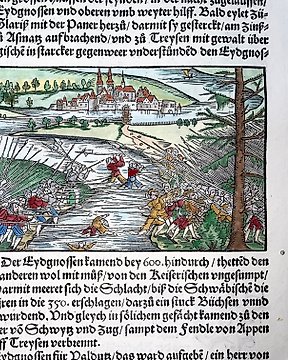 Eydgnossen vnd oberen vmb weyter hilff. Bald eylet Zü-
Glariß mit der Paner hertzů/ darmit sy gesterckt/ am Zinß-
Asinatz auffbrachend/ vnd zů Treysen mit gewalt über
gische in starcker gegenweer vnderstůnded den Eydgnos-
Der Eydgnossen kamend bey 600. hindurch/ thettend den
anderen wol mit můß/ von den Keiserischen vngesumpt/
Darmit meeret sich die Schlacht/ biß die Schwäbische die
iren in die 350. erschlagen/ darzů ein stuck Büchsen vnnd
wurdend. Vnd gleych in sölichem gefächt kamend zů den
er vō Schwytz vnd Zug/ sampt dem Fendle von Appen
ff Treysen verbrennt.
für Valdutz/ das ward auffgebē/ ein herr von